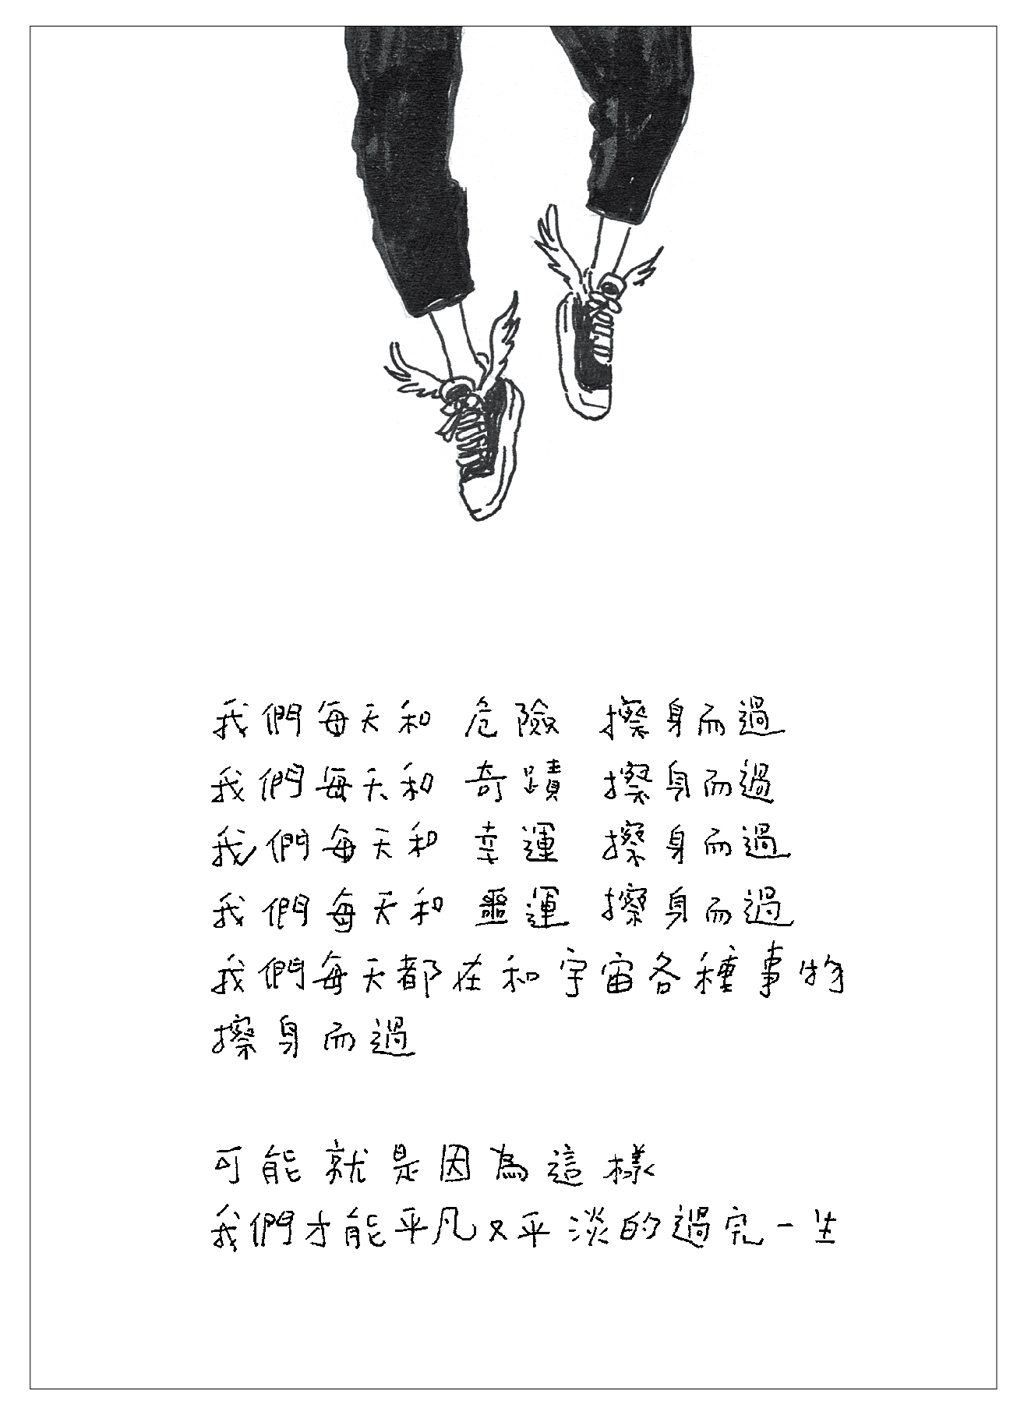 我們每天和 危險 擦身而過
我們每天和 奇蹟 擦身而過
我們每天和 幸運 擦身而過
我們每天和 噩運 擦身而過
我們每天都在和宇宙各種事物
擦身而過
可能就是因為這樣
我們才能平凡又平淡的過完一生